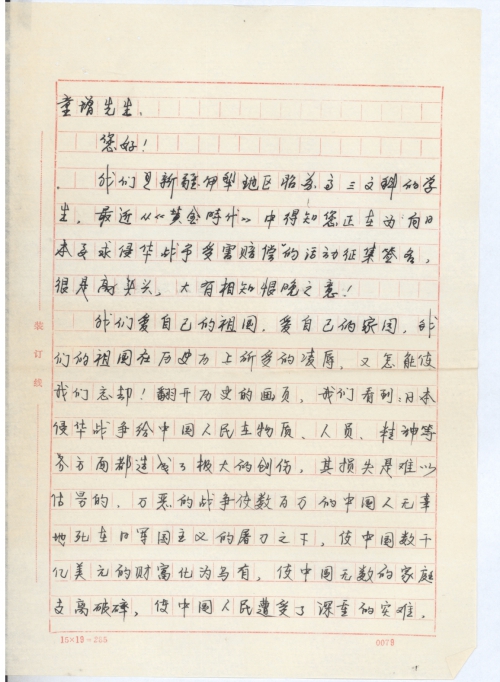 童增先生，
您好！
我们是新疆伊犁地区昭苏高三文科的学
生，最近从《黄金时代》中得知您正在为"向日
本要求侵华战争受害赔偿"的活动征集签名，
很是高兴，大有相知恨晚之意！
我们爱自己的祖国，爱自己的家园，我
们的祖国在历史上所受的凌辱，又怎能使
我们忘却！翻开历史的画页，我们看到：日本
侵华战争给中国人民在物质、人员、精神等
各方面都造成了极大的创伤，其损失是难以
估量的，万恶的战争使数百万的中国人无辜
地死在日军国主义的屠刀之下，使中国数千
亿美元的财富化为乌有，使中国无数的家庭
支离破碎，使中国人民遭受了深重的灾难。
装订线
15×19=285
0079